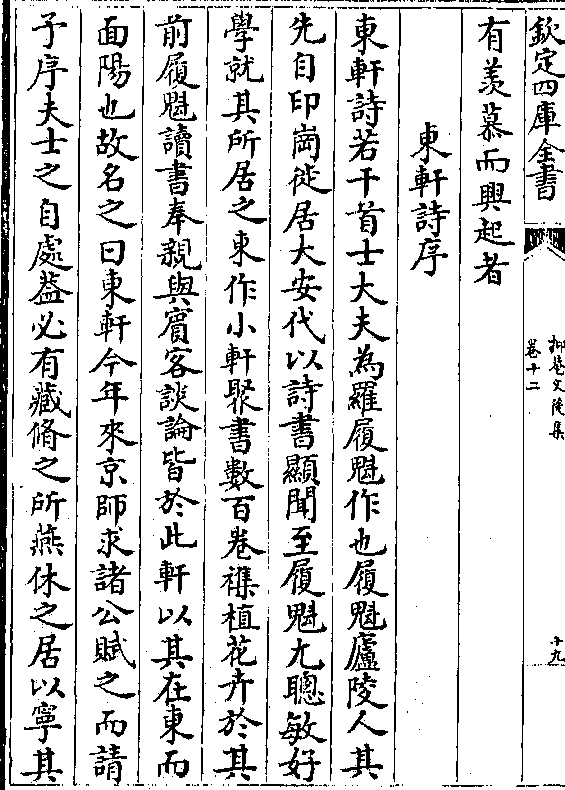 欽定四庫全書
抑菴文後集
卷十二
十九
有羡慕而興起者
東軒詩序
東軒詩若干首士大夫為羅履魁作也履魁廬陵人其
先自印崗徙居大安代以詩書顯聞至履魁尤聰敏好
學就其所居之東作小軒聚書數百卷襍植花卉於其
前履魁讀書奉親與賓客談論皆於此軒以其在東而
面陽也故名之曰東軒今年來京師求諸公賦之而請
予序夫士之自處葢必有藏脩之所燕休之居以寧其